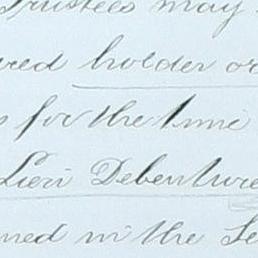 Trustees may
holder or
for the time
Lien Debenture
in the